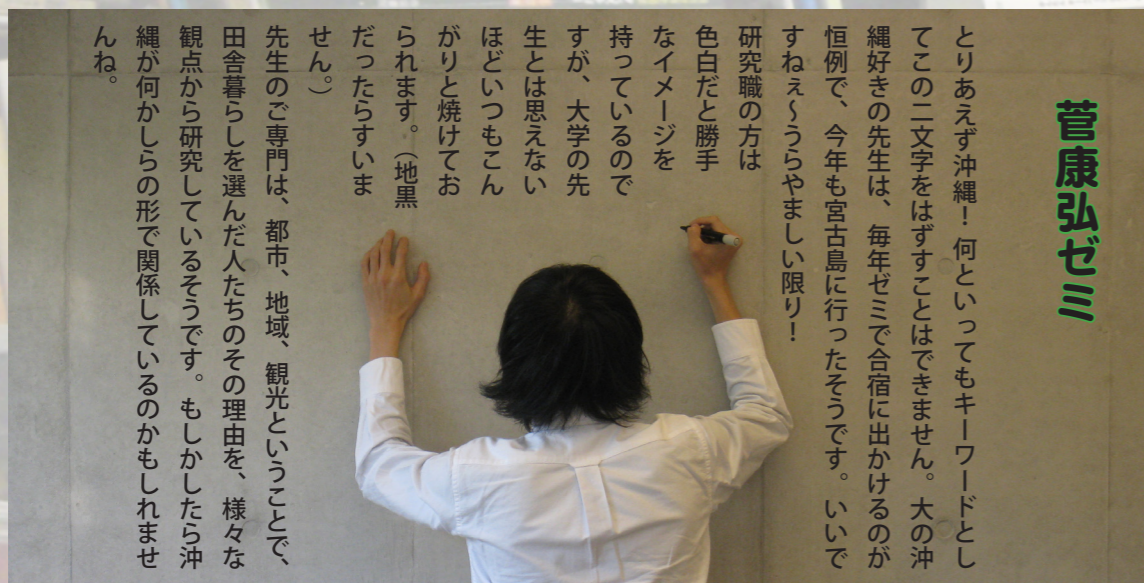 菅康弘ゼミ
とりあえず沖縄！何といってもキーワードとし
てこの二文字をはずすことはできません。大の沖
縄好きの先生は、毎年ゼミで合宿に出かけるのが
恒例で、今年も宮古島に行ったそうです。いいで
すねぇ～うらやましい限り！
研究職の方は
色白だと勝手
なイメージを
持っているので
すが、大学の先
生とは思えない
ほどいつもこん
がりと焼けてお
られます。（地黒
だったらすいま
せん。）
先生のご専門は、都市、地域、観光ということで、
田舎暮らしを選んだ人たちのその理由を、様々な
観点から研究しているそうです。もしかしたら沖
縄が何かしらの形で関係しているのかもしれませ
んね。